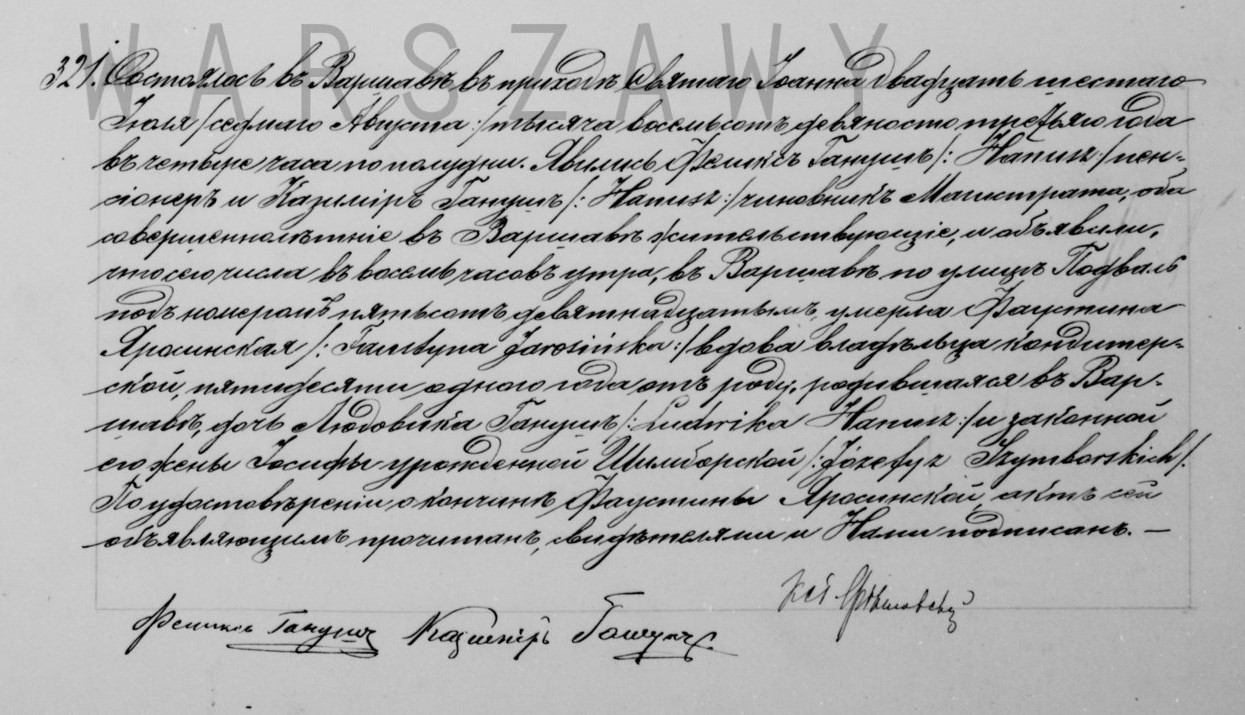 WARSZAWY
321. Состоялось въ Варшавѣ въ приходѣ Святаго Іоанна двадцать шестаго
Іюля /седмаго Августа:/ тысяча восемьсотъ девяносто третьяго года
въ четыре часа по полудни. Явились Феликсъ Ганушъ /: Hanusz :/ пен-
сіонеръ и Казиміръ Ганушъ /: Hanusz :/ чиновникъ Магистрата, оба
совершеннолѣтніе въ Варшавѣ жительствующіе, и объявили,
что сего числа въ восемь часовъ утра, въ Варшавѣ по улицѣ Подваль
подъ номеромъ пятьсотъ девятнадцатымъ, умерла Фаустина
Яросинская /: Faustyna Jarosińska :/ вдова владѣльца кондитер-
ской, пятидесяти одного года отъ роду, родившаяся въ Вар-
шавѣ, дочь Людовика Ганушъ /: Ludwika Hanusz :/ и законной
его жены Іосифы урожденной Шымборской /: Józefy z Szymborskich /:
По удостовѣреніи о кончинѣ Фаустины Яросинской, актъ сей
объявляющимъ прочитанъ, свидѣтелями и Нами подписанъ. —
Феликсъ Ганушъ Казиміръ Ганушъ.